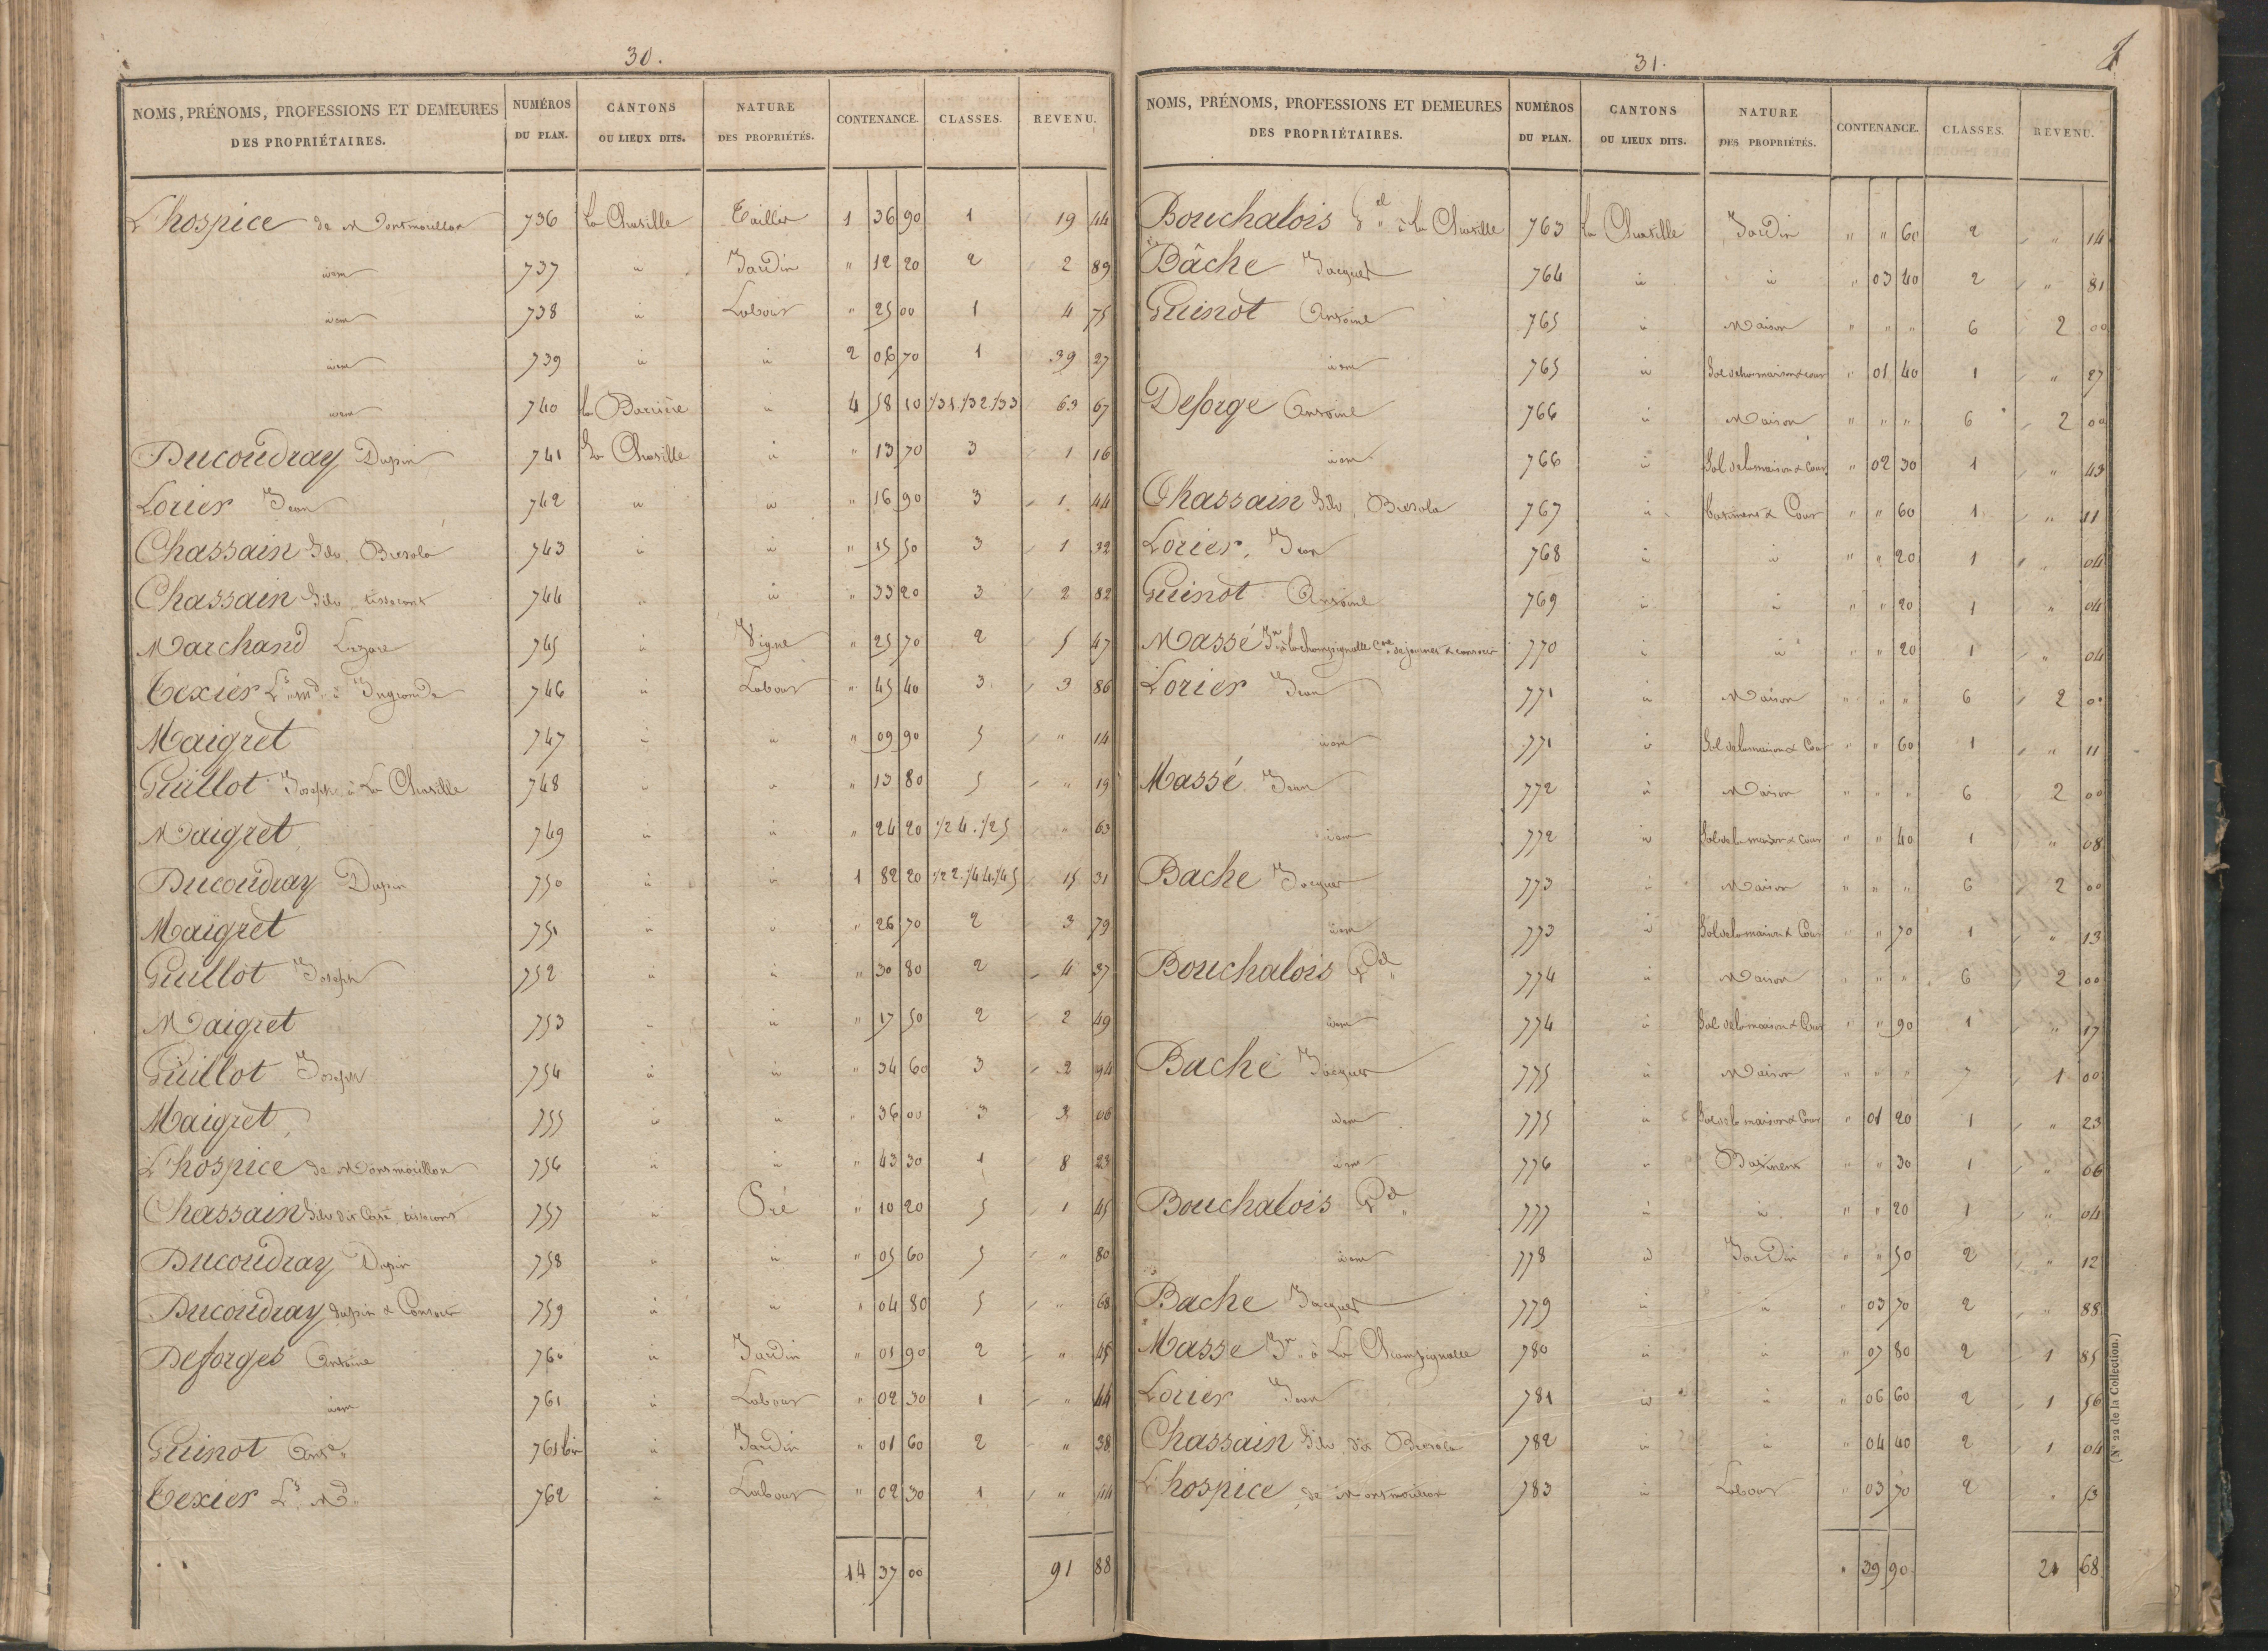 30.
NOMS, PRÉNOMS, PROFESSIONS ET DEMEURES DES PROPRIÉTAIRES. NUMÉROS DU PLAN. CANTONS OU LIEUX DITS. NATURE DES PROPRIÉTÉS. CONTENANCE. CLASSES. REVENU.
L'hospice de Montmorillon 736 La Chaville Taillis 1 36 90 1 19 44
idem 737 id Jardin " 12 20 2 2 89
idem 738 id Labour " 25 00 1 4 75
idem 739 id id 2 06 70 1 39 27
idem 740 la Barrière id 4 58 10 1/3 1. 1/3 2. 1/3 3 63 67
Ducoudray Dupin 741 La Chaville id " 13 70 3 1 16
Lorier Jean 742 id id " 16 90 3 1 44
Chassain Silv. Bresola 743 id id " 15 50 3 1 32
Chassain Silv. tisserant 744 id id " 33 20 3 2 82
Marchand Lazare 745 id Vigne " 25 70 2 5 47
Texier Ls md à Ingrande 746 id Labour " 45 40 3 3 86
Maigret 747 id id " 09 90 5 " 14
Guillot Joseph à La Chaville 748 id id " 13 80 5 " 19
Maigret 749 id id " 24 20 1/2 4. 1/2 5 " 63
Ducoudray Dupin 750 id id 1 82 20 1/2 2. 1/4 4. 1/4 5 15 31
Maigret 751 id id " 26 70 2 3 79
Guillot Joseph 752 id id " 30 80 2 4 37
Maigret 753 id id " 17 50 2 2 49
Guillot Joseph 754 id id " 34 60 3 2 94
Maigret 755 id id " 36 00 3 3 06
L'hospice de Montmorillon 756 id id " 43 30 1 8 23
Chassain Silv dit Casé tisserant 757 id Pré " 10 20 5 1 45
Ducoudray Dupin 758 id id " 05 60 5 " 80
Ducoudray Dupin & Consors 759 id id " 04 80 5 " 68
Deforges Antoine 760 id Jardin " 01 90 2 " 45
idem 761 id Labour " 02 30 1 " 44
Guinot Antne 761 bis id Jardin " 01 60 2 " 38
Texier Ls Md 762 id Labour " 02 30 1 " 44
14 37 00 91 88
31.
NOMS, PRÉNOMS, PROFESSIONS ET DEMEURES DES PROPRIÉTAIRES. NUMÉROS DU PLAN. CANTONS OU LIEUX DITS. NATURE DES PROPRIÉTÉS. CONTENANCE. CLASSES. REVENU.
Bouchalois à la Chaville 763 La Chaville Jardin " " 60 2 " 14
Bâche Jacques 764 id id " 03 40 2 " 81
Guinot Antoine 765 id Maison " " " 6 2 00
idem 765 id Sol de la maison & cour " 01 40 1 " 27
Deforge Antoine 766 id Maison " " " 6 2 00
idem 766 id Sol de la maison & Cour " 02 30 1 " 43
Chassain Silv. Bresola 767 id batiment & Cour " " 60 1 " 11
Lorier, Jean 768 id id " " 20 1 " 04
Guinot Antoine 769 id id " " 20 1 " 04
Massé Jn à la champignolle & consors 770 id id " " 20 1 " 04
Lorier Jean 771 id Maison " " " 6 2 00
idem 771 id Sol de la maison & Cour " " 60 1 " 11
Massé Jean 772 id Maison " " " 6 2 00
idem 772 id Sol de la maison & Cour " " 40 1 " 08
Bache Jacques 773 id Maison " " " 6 2 00
idem 773 id Sol de la maison & Cour " " 70 1 " 13
Bouchalois Gd 774 id Maison " " " 6 2 00
idem 774 id Sol de la maison & Cour " " 90 1 " 17
Bache Jacques 775 id Maison " " " 7 1 00
idem 775 id Sol de la maison & Cour " 01 20 1 " 23
idem 776 id Batiment " " 30 1 " 06
Bouchalois Gd 777 id id " " 20 1 " 04
idem 778 id Jardin " " 50 2 " 12
Bache Jacques 779 id id " 03 70 2 " 88
Masse Jn à La Champignolle 780 id id " 07 80 2 1 85
Lorier Jean 781 id id " 06 60 2 1 56
Chassain Silv. dit Bresola 782 id id " 04 40 2 1 04
L'hospice de Montmorillon 783 id Labour " 03 70 2 " 53
" 39 90 21 68
(N° 22 de la Collection.)